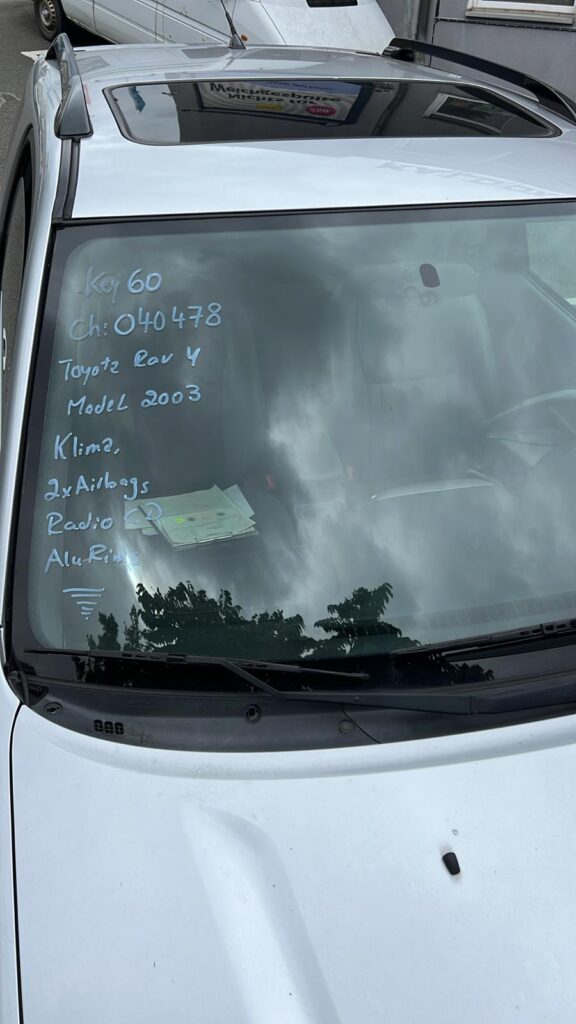 Key 60
Ch: 040478
Toyota Rav 4
Model 2003
Klima,
2xAirbags
Radio CD
Alu Rims